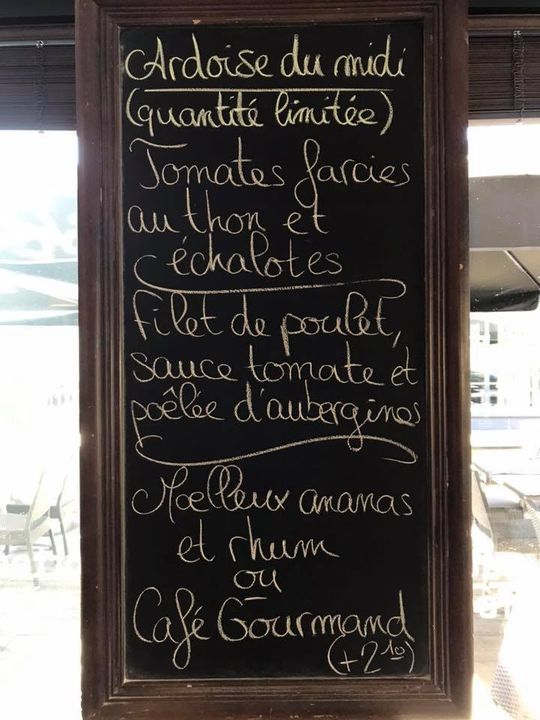 Ardoise du midi
(quantité limitée)
Tomates farcies
au thon et
échalotes
Filet de poulet,
sauce tomate et
poêlée d'aubergines
Moelleux ananas
et rhum
ou
Café Gourmand
(+2 10)